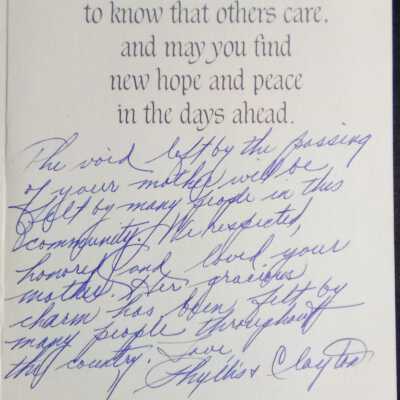 to know that others care.
and may you find
new hope and peace
in the days ahead.
The void left by the passing
of your mother will be
felt by many people in this
community. We respected,
honored and loved your
mother. Her gracious
charm has been felt by
many people throughout
the country. Love
Phyllis & Clayton